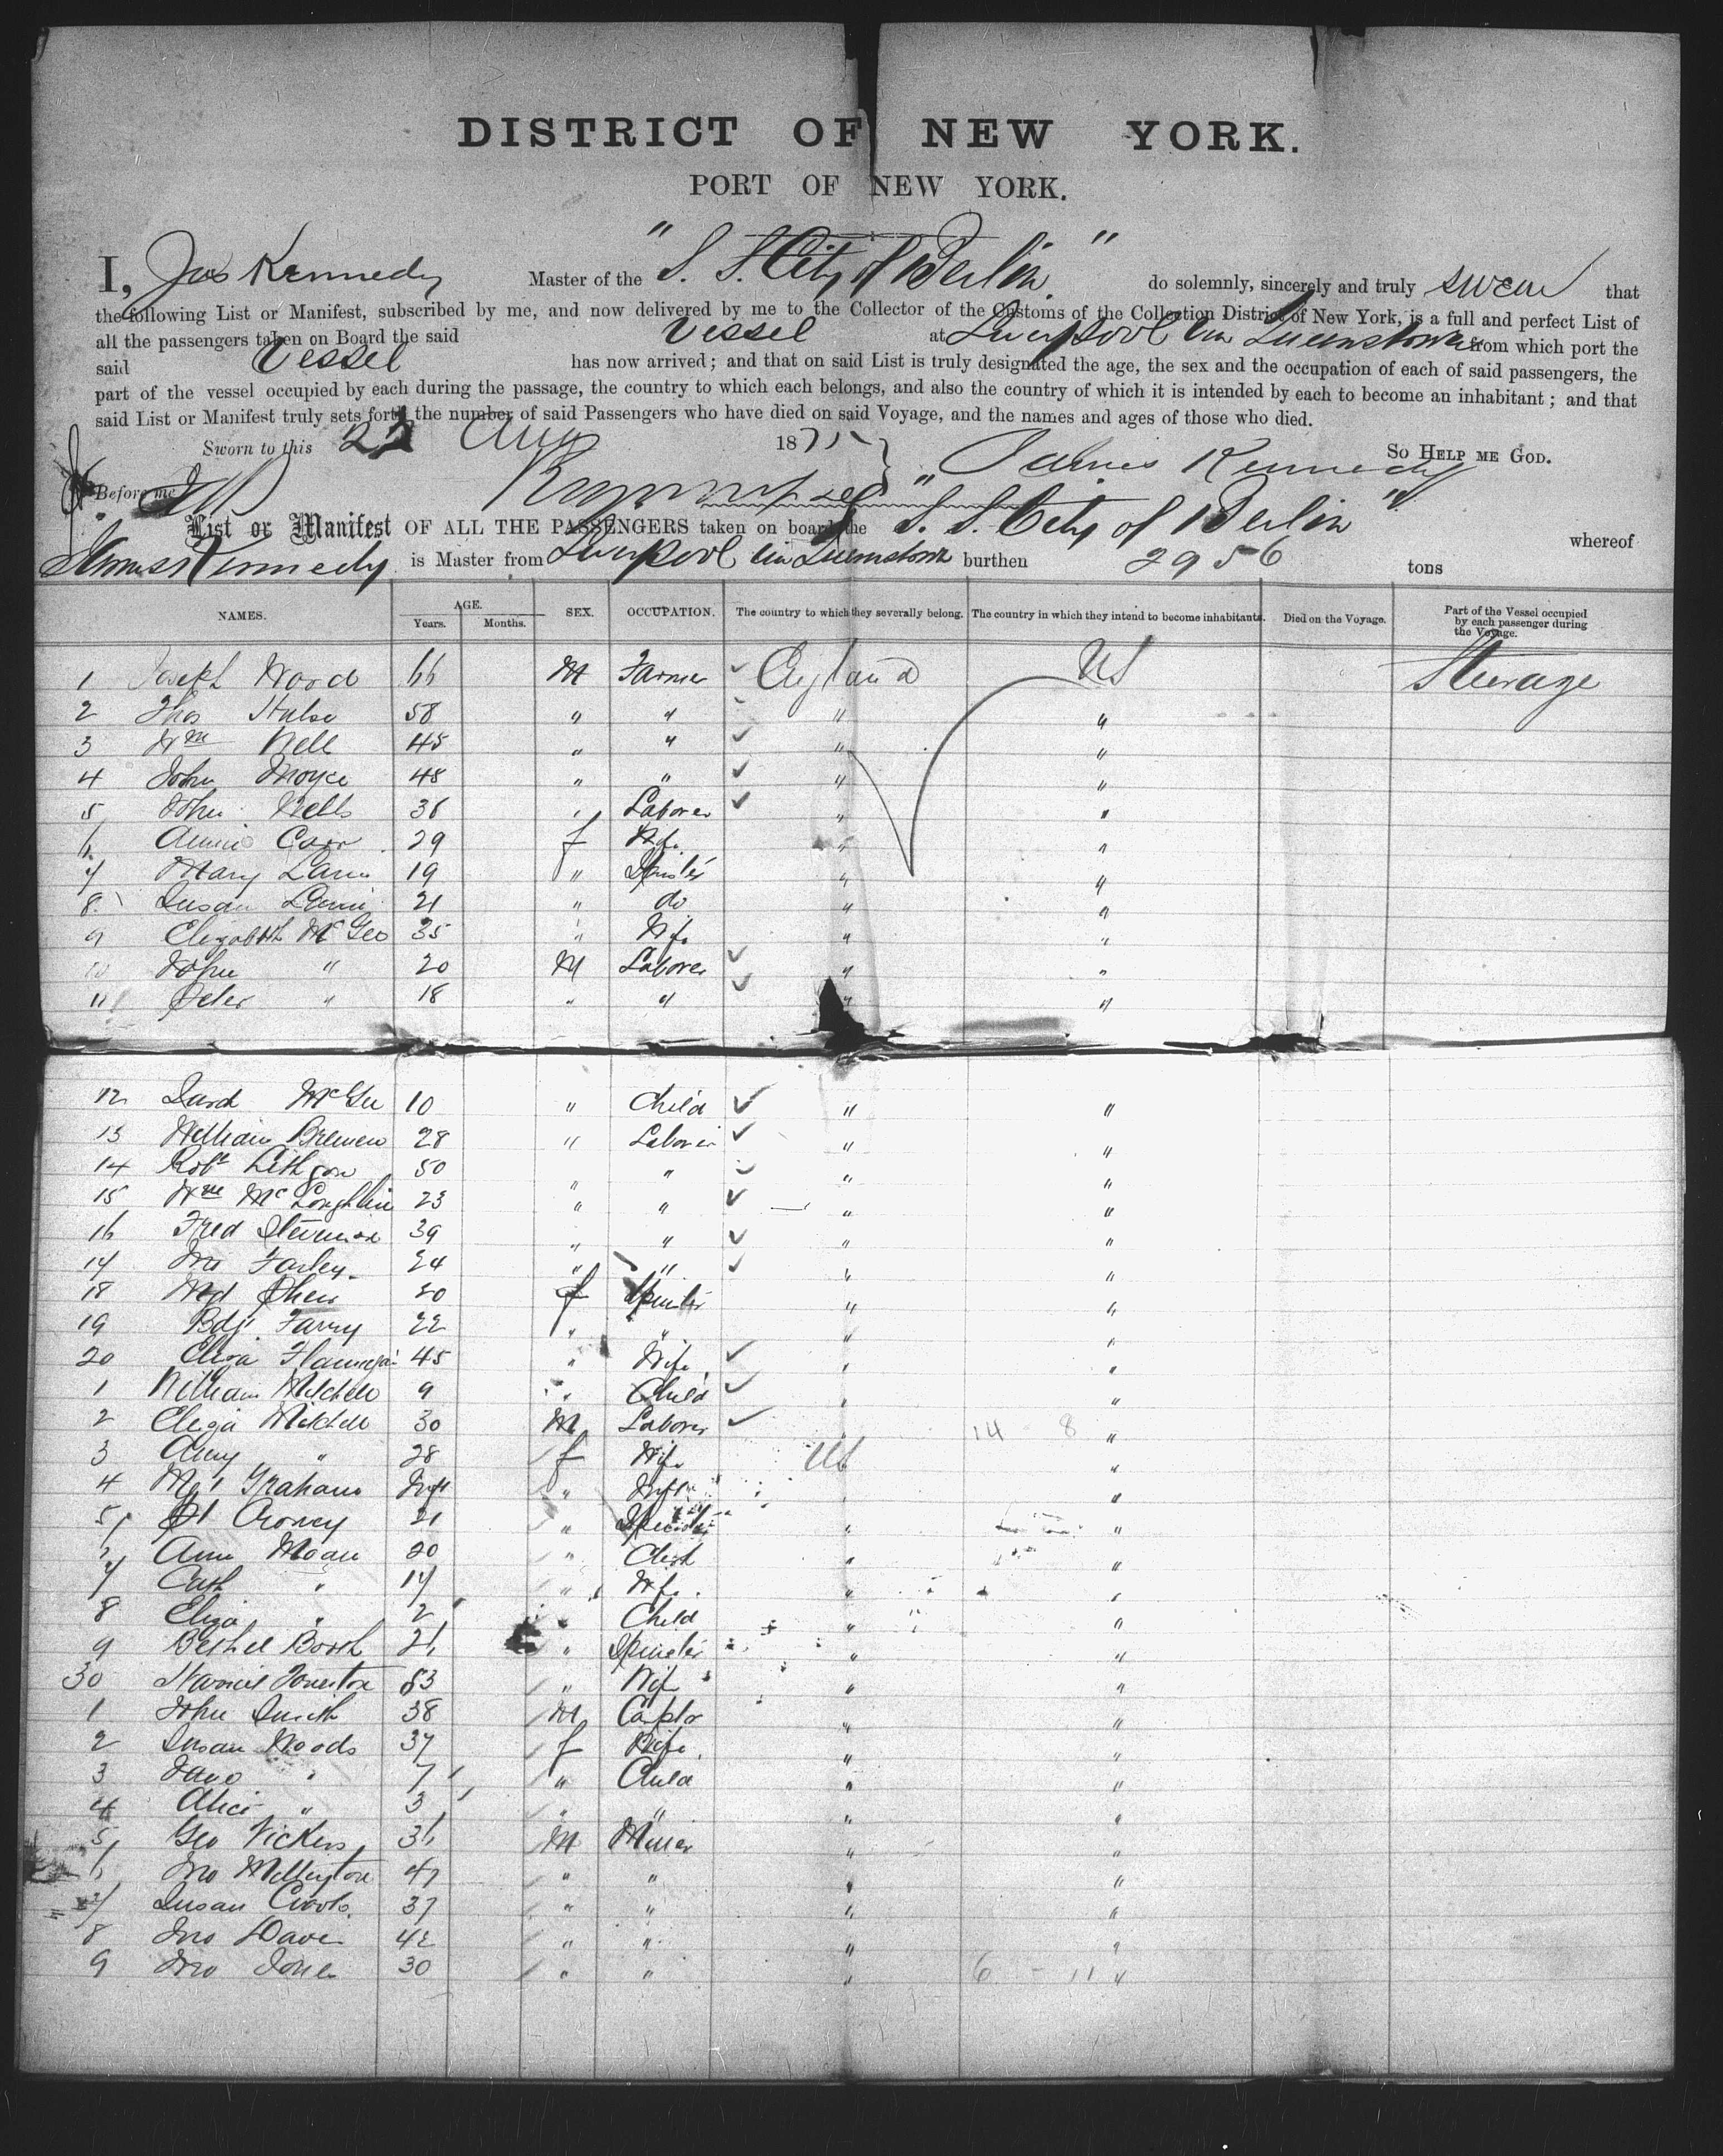 DISTRICT OF NEW YORK.
PORT OF NEW YORK.
I, Jas Kennedy Master of the "S. S. City of Berlin" do solemnly, sincerely and truly swear that
the following List or Manifest, subscribed by me, and now delivered by me to the Collector of the Customs of the Collection District of New York, is a full and perfect List of
all the passengers taken on Board the said Vessel at Liverpool Via Queenstown from which port the
said Vessel has now arrived; and that on said List is truly designated the age, the sex and the occupation of each of said passengers, the
part of the vessel occupied by each during the passage, the country to which each belongs, and also the country of which it is intended by each to become an inhabitant; and that
said List or Manifest truly sets forth the number of said Passengers who have died on said Voyage, and the names and ages of those who died.
Sworn to this 23 Aug 1875 So Help me God.
Before me James Kennedy
List or Manifest OF ALL THE PASSENGERS taken on board the "S. S. City of Berlin" whereof
James Kennedy is Master from Liverpool Via Queenstown burthen 2956 tons
NAMES. AGE. Years. Months. SEX. OCCUPATION. The country to which they severally belong. The country in which they intend to become inhabitants. Died on the Voyage. Part of the Vessel occupied by each passenger during the Voyage.
1 Joseph Wood 66 M Farmer England US Steerage
2 Thos Hulse 58 " " " "
3 Wm Nell 45 " " " "
4 John Moyce 48 " " " "
5 John Wells 36 " Laborer " "
6 Annie Carr 29 f Wife " "
7 Mary 19 " Spinster " "
8 Susan 21 " do " "
9 Elizabeth McGeo 35 " Wife " "
10 John " 20 M Laborer " "
11 Peter " 18 " " " "
12 McGee 10 " Child " "
13 William 28 " Laborer " "
14 Robt Lithgow 50 " " " "
15 Wm McLoughlin 23 " " " "
16 Fred 39 " " " "
17 Jno Farley 24 " " " "
18 20 f Spinster " "
19 Bdgt Farry 22 " " " "
20 Eliza Flannagan 45 " Wife " "
1 William Mitchell 9 " Child " "
2 Eliza Mitchell 30 M Laborer " 14 8 "
3 Amy " 28 f Wife US "
4 Mgt Graham Inft " Inft " "
5 Croney 21 " Spinster " "
6 Ann Moan 20 " " "
7 Cath " 17 " Wfe " "
8 Eliza " 2 " Child " "
9 Booth 26 " Spinster " "
30 53 " Wife " "
1 John Smith 38 M " "
2 Susan Woods 37 f Wife " "
3 " 7 " Child " "
4 Alice " 3 " " " "
5 Geo Vickers 36 M Miner " "
6 Jno Mellington 47 " " " "
7 Susan 37 " " " "
8 Jno Davis 42 " " " "
9 Jno Jones 30 " " " 6 - 11 "